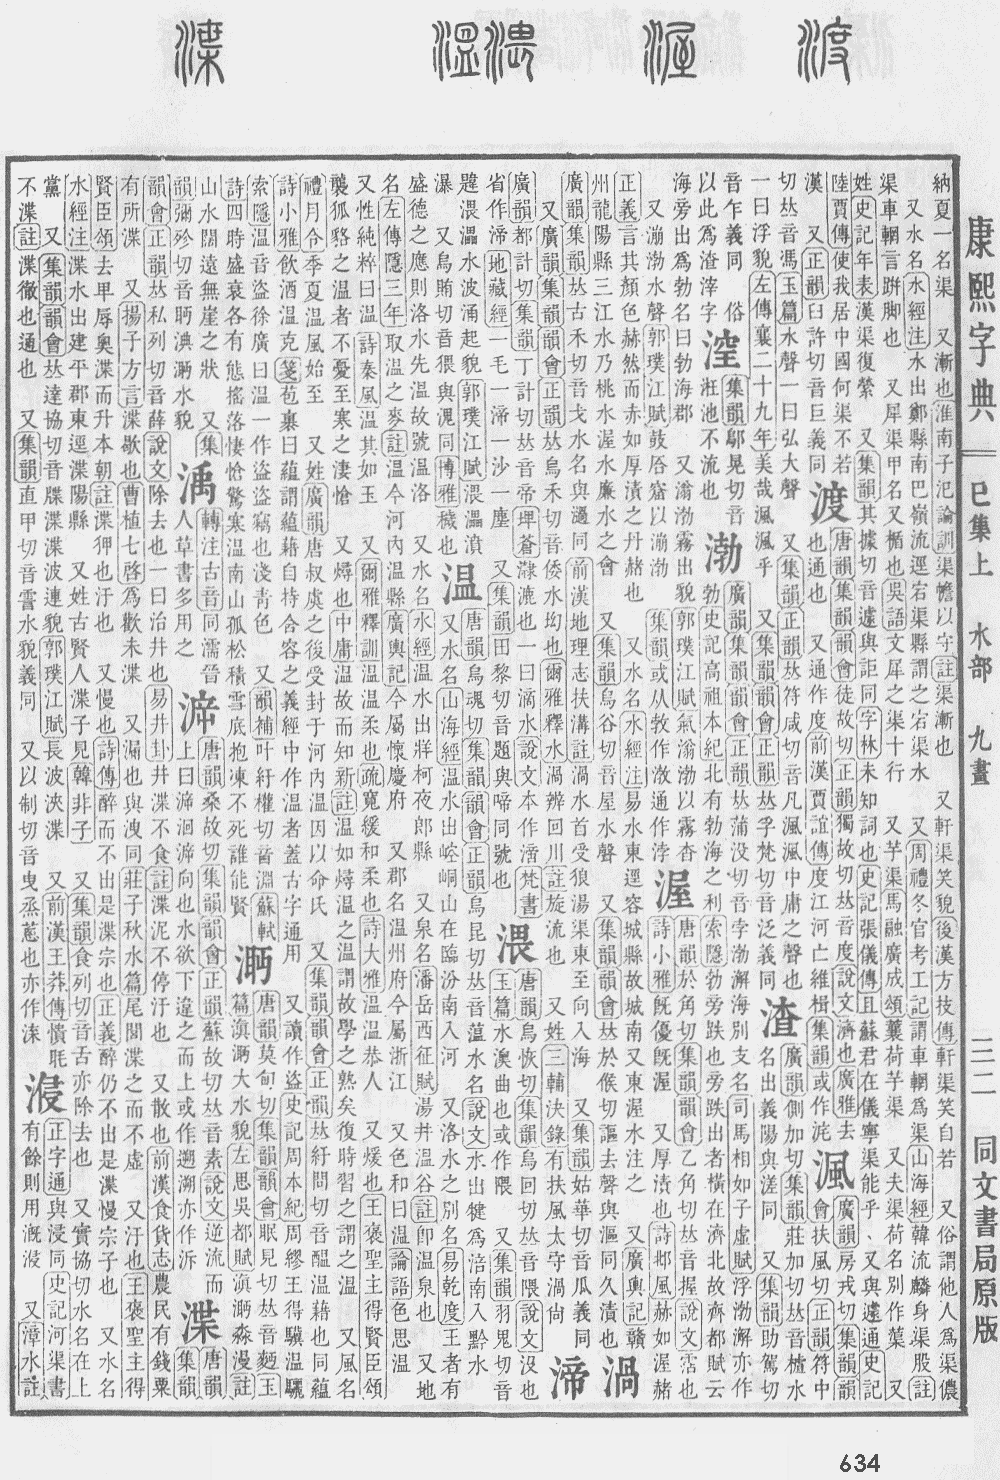 渡
渥
渨
溫
渫
康熙字典
巳集上 水部 九畫
三二
同文書局原版
納夏一名渠 又漸也淮南子氾論訓渠幨以守註渠漸也 又軒渠笑貌後漢方技傳軒渠笑自若 又俗謂他人為渠儂
又水名水經注水出鄭縣南巴嶺流逕宕渠縣謂之宕渠水 又周禮冬官考工記謂車輞爲渠山海經韓流麟身渠股註
渠車輞言跰脚也 又犀渠甲名又楯也吳語文犀之渠十行 又芋渠馬融廣成頌蘘荷芋渠 又夫渠荷名別作蕖 又
姓史記年表漢渠復絫 又集韻其據切音遽與詎同字林未知詞也史記張儀傳且蘇君在儀寧渠能乎又與遽通史記
陸賈傳使我居中國何渠不若
漢 又正韻臼許切音巨義同
渡
唐韻集韻韻會徒故切正韻獨故切𠀤音度說文濟也廣雅去
也通也 又通作度前漢賈誼傳度江河亡維楫集韻或作㡯
渢
廣韻房戎切集韻
會扶風切正韻符中
切𠀤音馮玉篇水聲一曰弘大聲 又集韻正韻𠀤符咸切音凡渢渢中庸之聲也
一曰浮貌左傳襄二十九年美哉渢渢乎 又集韻韻會正韻𠀤孚梵切音泛義同
渣
廣韻側加切集韻莊加切𠀤音樝水
名出義陽與溠同 又集韻助駕切
音乍義同 俗
以此爲渣滓字
集韻鄔晃切音
汪池不流也
渤
廣韻集韻韻會正韻𠀤蒲没切音孛渤澥海別支名司馬相如子虛賦浮渤澥亦作
勃史記高祖本紀北有勃海之利索隱勃旁跌也旁跌出者橫在濟北故齊都賦云
海旁出爲勃名曰勃海郡 又滃渤霧出貌郭璞江賦氣滃渤以霧杳
又㴋渤水聲郭璞江賦鼓㕎窟以㴋渤 集韻或从敎作 通作浡
渥
唐韻於角切集韻乙角切𠀤音握說文霑也
詩小雅旣優旣渥 又厚漬也詩邶風赫如渥赭
正義言其顏色赫然而赤如厚漬之丹赭也 又水名水經注易水東逕容城縣故城南又東渥水注之 又廣輿記贛
州龍陽縣三江水乃桃水渥水廉水之會 又集韻烏谷切音屋水聲 又集韻韻會𠀤於候切謳去聲與漚同久漬也
渦
廣韻集韻𠀤古禾切音戈水名與濄同前漢地理志扶溝註渦水首受狼湯渠東至向入海 又姓三輔決錄有扶風太守渦尙
又廣韻集韻韻會正韻𠀤烏禾切音倭水坳也爾雅釋水渦辨回川註旋流也 又集韻姑華切音瓜義同
渧
廣韻都計切集韻丁計切𠀤音帝埤蒼渧漉也一曰滴水說文本作 梵書
省作渧地藏經一毛一渧一沙一塵 又集韻田黎切音題與啼同號也
渨
唐韻烏恢切集韻烏回切𠀤音隈說文沒也
玉篇水澳曲也或作隈 又集韻羽鬼切音
韙渨㵽水波涌起貌郭璞江賦渨㵽濆
瀑 又烏賄切音猥與溾同博雅穢也
温
唐韻烏魂切集韻韻會正韻烏昆切𠀤音薀水名說文水出犍爲涪南入黔水
又水名山海經温水出崆峒山在臨汾南入河 又洛水之別名易乾度王者有
盛德之應則洛水先温故號温洛 又水名水經温水出牂柯夜郎縣 又泉名潘岳西征賦湯井温谷註卽温泉也 又地
名左傳隱三年取温之麥註温今河內温縣廣輿記今屬懷慶府 又郡名温州府今屬浙江 又色和曰温論語色思温
又性純粹曰温詩秦風温其如玉 又爾雅釋訓温温柔也疏寬緩和柔也詩大雅温温恭人 又煖也王褒聖主得賢臣頌
襲狐貉之温者不憂至寒之淒愴 又燖也中庸温故而知新註温如燖温之温謂故學之熟矣復時習之謂之温 又風名
禮月令季夏温風始至 又姓廣韻唐叔虞之後受封于河內温因以命氏 又集韻韻會正韻𠀤紆問切音醞温藉也同蘊
詩小雅飮酒温克箋苞裹曰蘊謂蘊藉自持含容之義經中作温者蓋古字通用 又讀作盗史記周本紀周繆王得驥温驪
索隱温音盜徐廣曰温一作盜盜竊也淺靑色 又韻補叶紆權切音淵蘇軾
詩四時盛衰各有態搖落悽愴驚寒温南山孤松積雪底抱凍不死誰能賢
㴐
唐韻莫甸切集韻韻會眠見切𠀤音麪玉
篇滇㴐大水貌左思吳都賦滇㴐淼漫註
山水闊遠無崖之狀 又集
韻彌殄切音眄淟㴐水貌
渪
轉注古音同濡晉
人草書多用之
㴑
唐韻桑故切集韻韻會正韻蘇故切𠀤音素說文逆流而
上曰㴑洄㴑向也水欲下違之而上或作遡溯亦作泝
渫
唐韻
集韻
韻會正韻𠀤私列切音薛說文除去也一曰治井也易井卦井渫不食註渫泥不停汙也 又散也前漢食貨志農民有錢粟
有所渫 又揚子方言渫歇也曹植七啓爲歡未渫 又漏也與洩同莊子秋水篇尾閭渫之而不虛 又汙也王褒聖主得
賢臣頌去卑辱奧渫而升本朝註渫狎也汙也 又慢也詩傳醉而不出是渫宗也正義醉仍不出是渫慢宗子也 又水名
水經注渫水出建平郡東逕渫陽縣 又姓古賢人渫子見韓非子 又集韻食列切音舌亦除去也 又實協切水名在上
黨 又集韻韻會𠀤達協切音牒渫渫波連貌郭璞江賦長波浹渫 又前漢王莽傳憒眊
不渫註渫徹也通也 又集韻直甲切音霅水貌義同 又以制切音曳烝蔥也亦作沫
㴆
正字通與浸同史記河渠書
有餘則用漑㴆 又漳水註
634